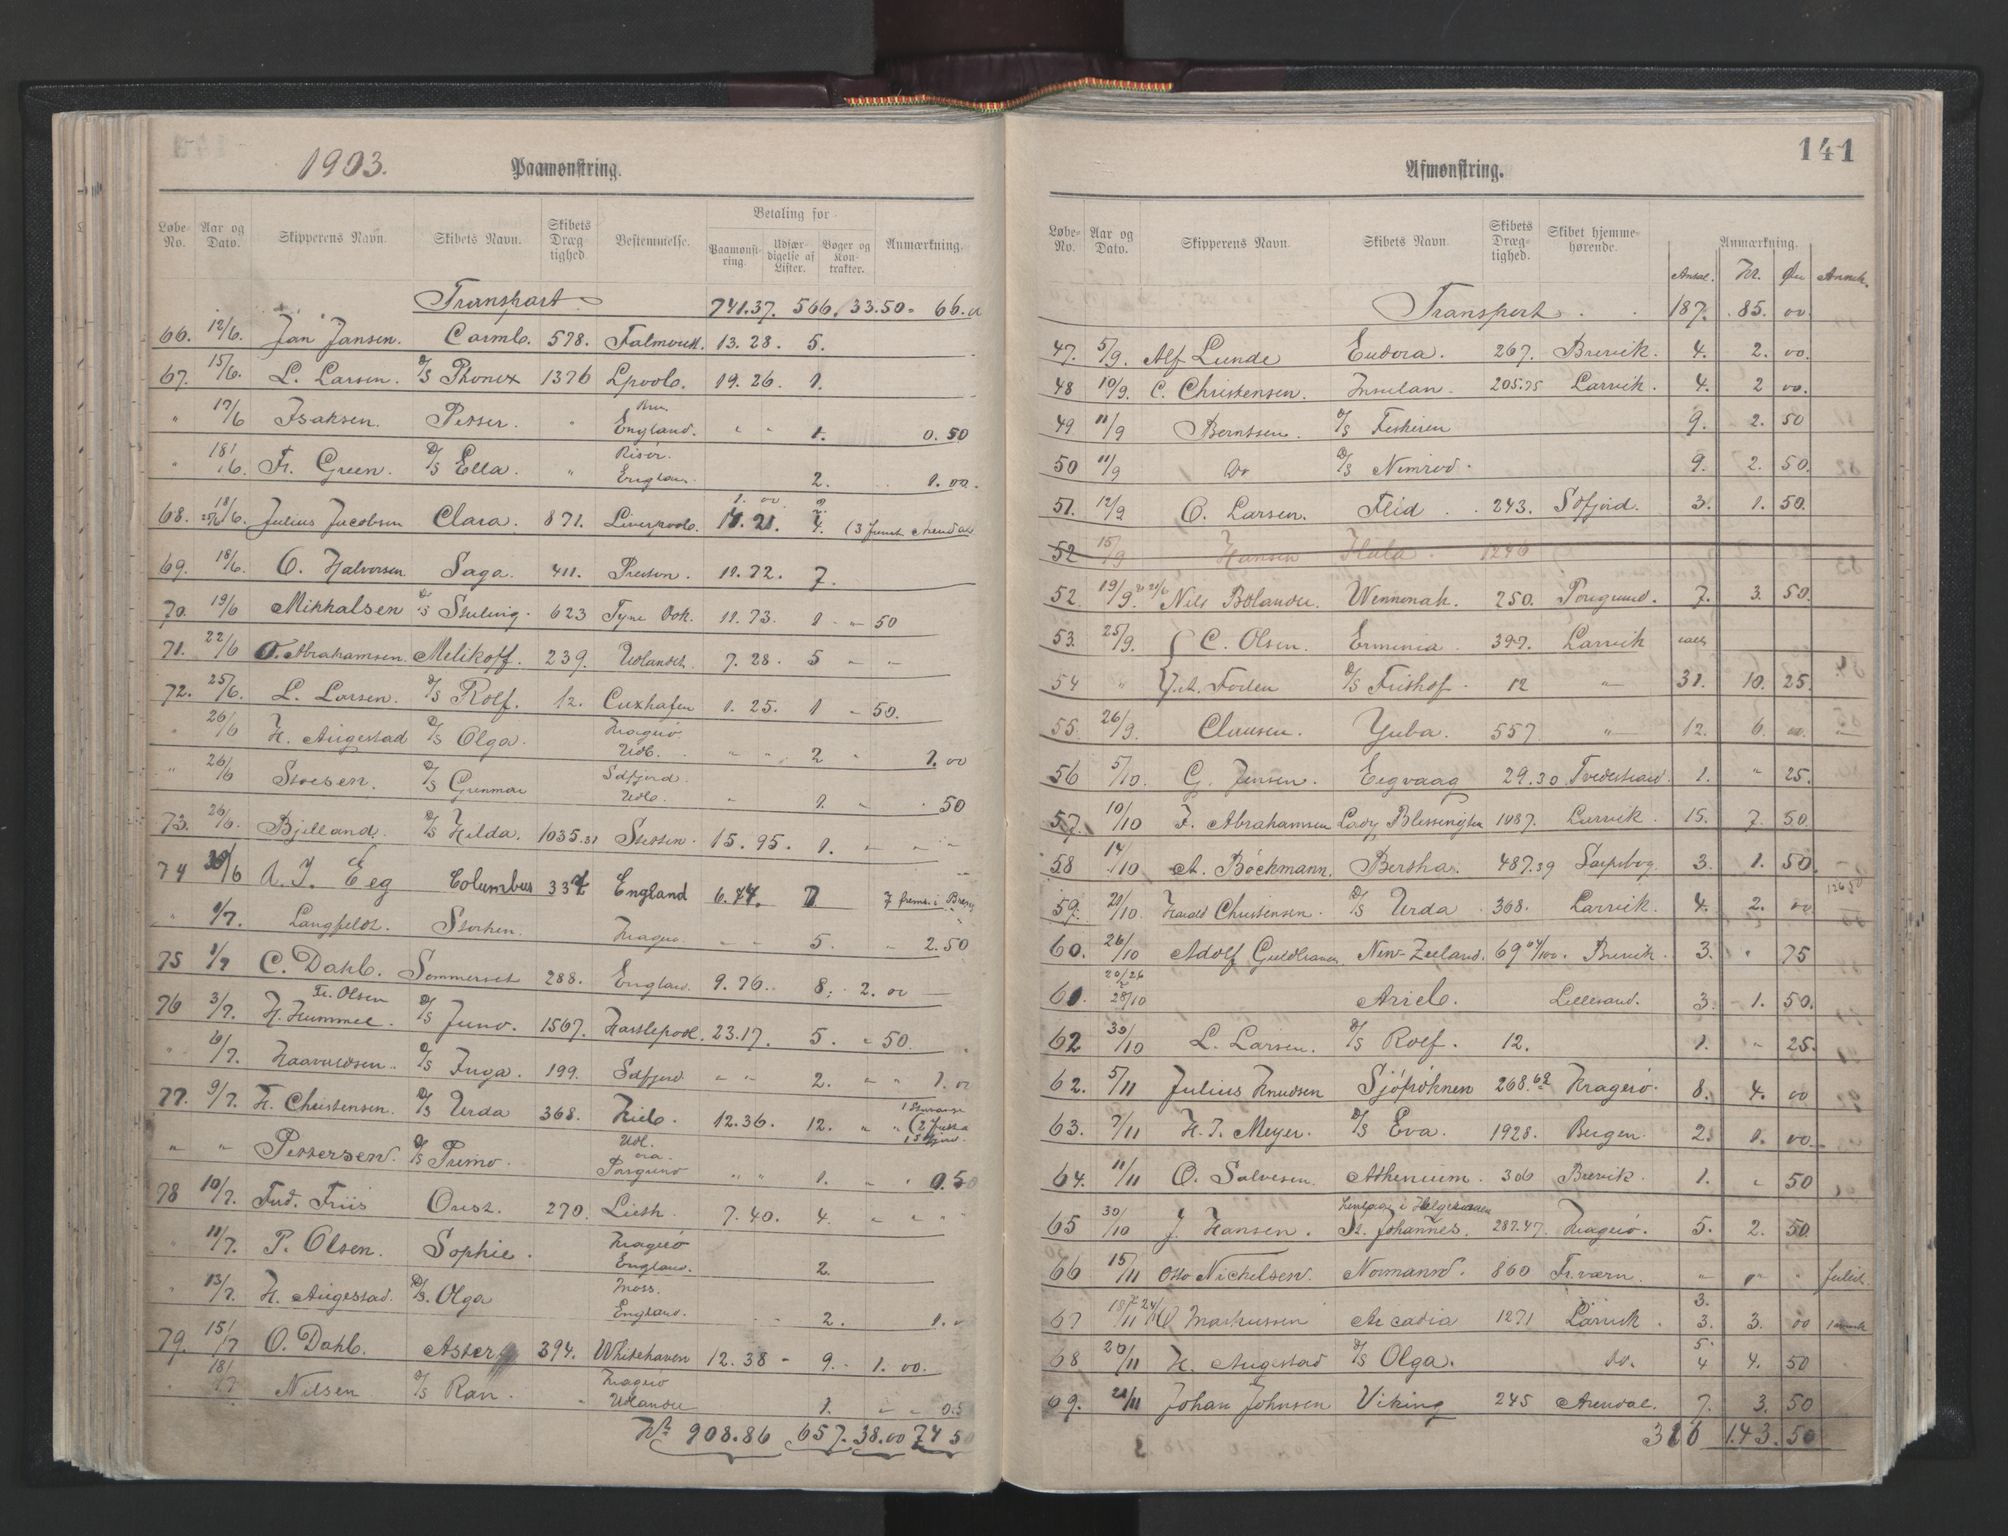 1903. Paamønstring.
Løbe-No. Aar og Dato. Skipperens Navn. Skibets Navn. Skibets Dræg-tighed. Bestemmelse. Betaling for Paamønst-ring. Udfær-digelse af Lister. Bøger og Kon-trakter. Anmærkning.
Transport 741.37. 566. 33.50. 66.
66. 12/6. Jan Jansen. Carmb. 578. Falmouth. 13.28. 5.
67. 15/6. L. Larsen. D/S Phonix 1376 Lpoolo. 19.26. 1.
" 17/6 Isaksen. Petter. " England. " " 1. 0.50
" 18/6. Fr. Green. D/S Ella. " Risør. England 2. 1.00.
68. 18/6. Julius Jacobsen Clara. 871. Liverpool. 21. 4. (3 Arendal
69. 18/6. O. Halvorsen Saga. 411. Preston. 11.72. 7.
70. 19/6 Mikkalsen D/S Stulwig. 623 Tyne Dok. 11.73. 1 " 50
71. 22/6 O. Abrahamsen. Melikoff. 239. Udlandet. 7.28. 5 " "
72. 25/6. L. Larsen. D/S Rolf. 12. Cuxhafen 1.25. 1 " 50.
" 26/6 H. Augestad D/S Olga. Kragerø Udl. " " 2 " 1.00
" 26/6 Stoesen. D/S Gunmar Sdfjord. Udl. " 1. " 50
73. 26/6. Bjelland. D/S Hilda. 1035.31 Stettin. 15.95. 1. " "
74 30/6 A. J. Eeg Columbus 337 England 6.74. 7 7 frems. i Brevig
" 1/7. Langfeldt. Storken. Kragerø. " " 5. " 2.50
75 1/7 C. Dahl. Sommerset 288. England. 9.76. 8. 2.00
76 3/7. Fr. Olsen H. Hummel. D/S Juno. 1567. Hartlepool. 23.17. 5. " 50.
" 6/7. Haavaldsen. D/S Inga. 199. Sdfjord " " 2. " " 1.00
77. 9/7. H. Christensen. D/S Urda 368. Kiel. 12.36. 12. " "
" " Pettersen. D/S Primo. Udl. via Porsgrund " " 1. " " 0.50
78 10/7. Fred. Friis Orist. 270. Lieth. 7.40. 4. " " "
" 11/7. P. Olsen. Sophie. Kragerø England. 2.
" 13/7. H. Augestad. D/S. Olga Moss. England. 2. 1.
79. 15/7 O. Dahl. Aster 394. Whitehaven 12.38 - 9. 1.00.
" 18/7 Nilsen D/S Ran. Kragerø Udlandet 1. " " 0.5
Kr. 908.86 657. 38.00 74 50
141
Afmønstring.
Løbe-No. Aar og Dato. Skipperens Navn. Skibets Navn Skibets Dræg-tighed. Skibet hjemme-hørende. Anmærkning. Antal. Kr. Øre Anmk.
Transport 187. 85. 00.
47. 5/9. Alf Lunde Eudora. 267. Brevik. 4. 2. 00.
48 10/9. C. Christensen. Insulan. 205.75 Larvik. 4. 2 00.
49 11/9 Berntsen. D/S Fiskeren 9. 2. 50
50 11/9 Do D/S Nimrod. 9. 2. 50.
51. 12/9 O. Larsen. Flid 243. Sdfjord 3. 1. 50.
52 15/9 Hansen Hala 1246
52. 19/9. Nils Bolander. Wennonah. 250. Porsgrund. 7. 3. 50.
53. 25/9. C. Olsen. Erminia. 397. Larvik
54 " A. Foden D/S Frithof. 12 " 31. 10. 25.
55. 26/9. Clausen. Yuba. 557. " 12. 6. 00. "
56 5/10. G. Jensen. Eegvaag 29.30 Tvedestrand. 1. " 25.
57. 10/10 F. Abrahamsen Lady Blessington 1087. Larvik. 15. 7. 50.
58 14/10 A. Böckmann. Bertha. 487.39 Sarpsborg. 3. 1. 50.
59. 20/10. Harald Christensen. D/S Urda 368. Larvik. 4. 2. 00
60. 26/10 Adolf Guldbransen New-Zeeland. 69 04/100. Brevik. 3. " 75
61. 20/26 28/10 Ariel. Lillesand. 3 1. 50.
62 30/10 L. Larsen. D/S Rolf. 12. 1. " 25.
62. 5/11 Julius Knudsen Sjöfröknen 268.62 Kragerø. 8. 4. 00
63. 7/11 H. J. Meyer. D/S Eva. 1928. Bergen. 2. 1. 00.
64. 11/11 O. Salvesen. Athenium. 306 Brevik. 1. " 50
65 30/10 J. Hansen. St. Johannes. 287.47. Kragerø. 5. 2. 50
66 15/11 Otto Nickelsen. Normand. 860 Fr.værn. " " "
67 18/11 24/11 O Markussen Arcadia 1271 Larvik. 3. 3. 3. 00
68 20/11 H. Augestad D/S Olga. Do. 5. 4 4. 50
69. 21/11 Johan Johnsen Viking 245 Arendal. 7. 3. 50
316 143.50